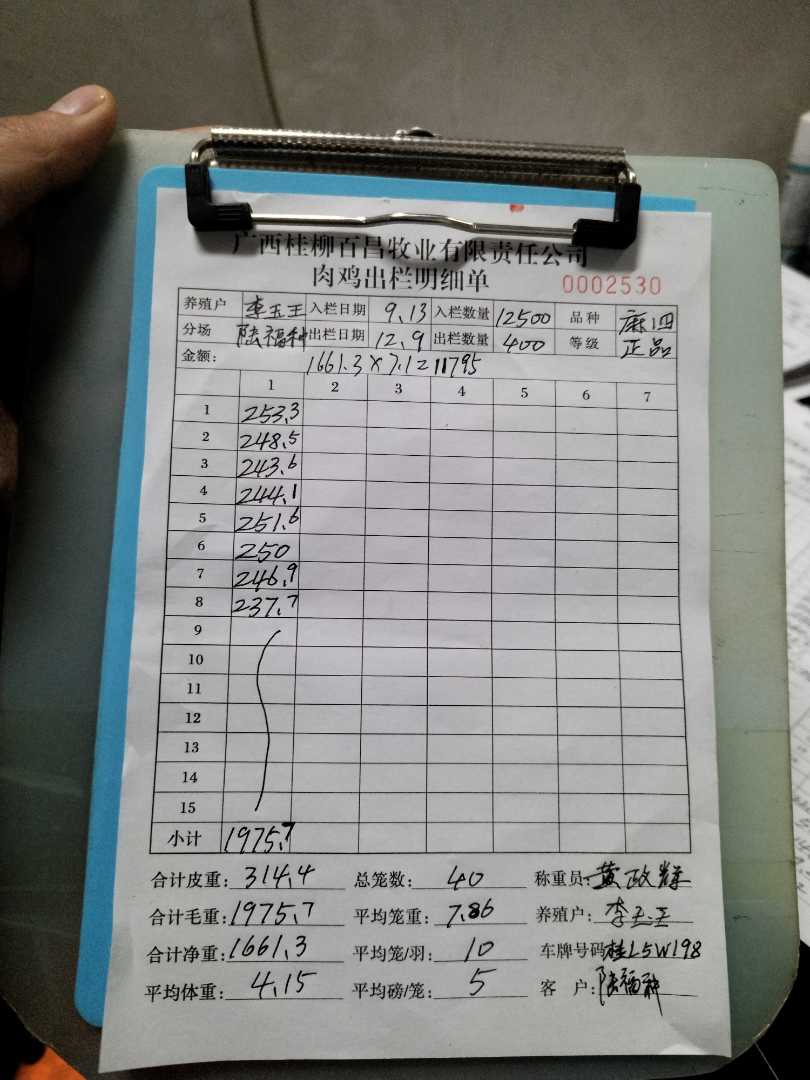 广西桂柳百昌牧业有限责任公司
肉鸡出栏明细单 0002530
养殖户 李玉王 入栏日期 9.13 入栏数量 12500 品种 麻四
分场 陆福种 出栏日期 12.9 出栏数量 400 等级 正品
金额: 1661.3×7.1=11795
1 2 3 4 5 6 7
1 253.3
2 248.5
3 243.6
4 244.1
5 251.6
6 250
7 246.9
8 237.7
9
10
11
12
13
14
15
小计 1975.7
合计皮重: 314.4 总笼数: 40 称重员: 黄政辉
合计毛重: 1975.7 平均笼重: 7.86 养殖户: 李玉王
合计净重: 1661.3 平均笼/羽: 10 车牌号码 桂L5W198
平均体重: 4.15 平均磅/笼: 5 客户: 陆福种